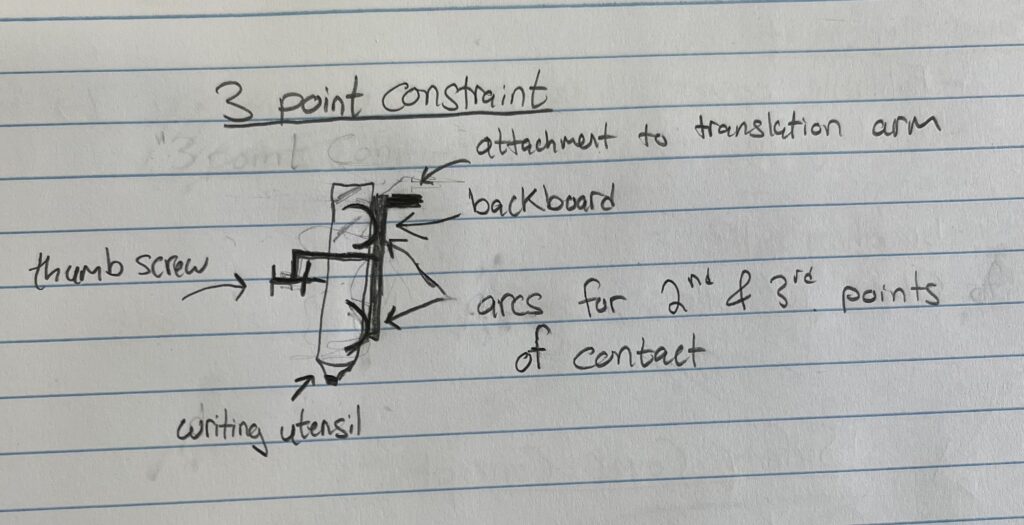 3 point constraint
attachment to translation arm
"3 point Con
backboard
thumb screw
arcs for 2nd & 3rd points
of contact
writing utensil